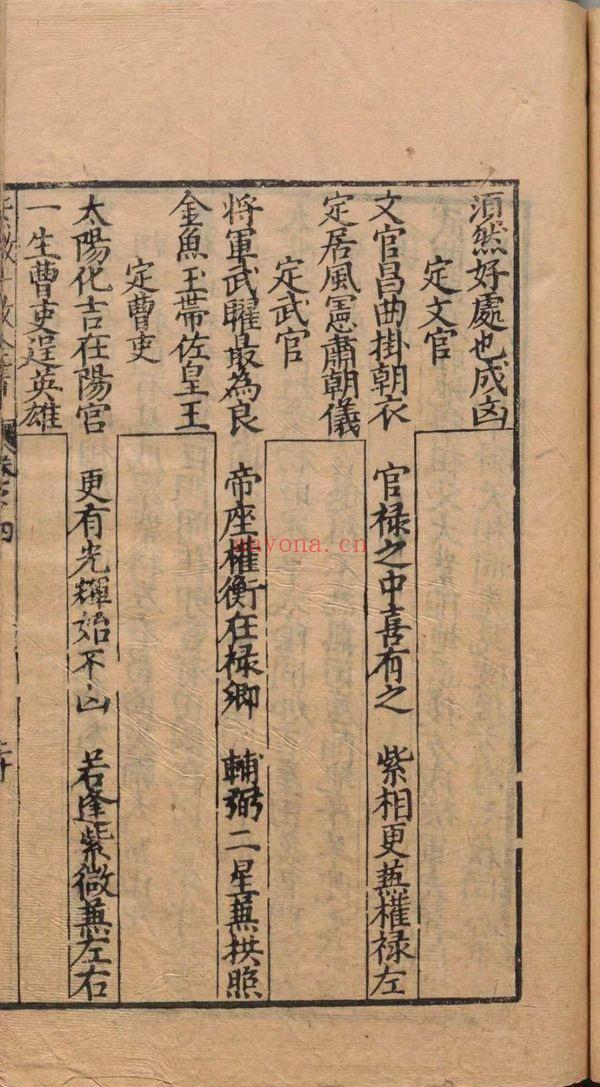 湏然好處也成凶
定文官
文官昌曲掛朝衣　官禄之中喜有之　紫相更蒹權禄左
定居風憲肅朝儀
定武官
将軍武曜最為良　帝座權衡在禄鄉　輔弼二星蒹拱照
金魚玉帶佐皇王
定曹吏
太陽化吉在陽宫　更有光輝始不凶　若逢紫微蒹左右
一生曹吏逞英雄
uayona.cn